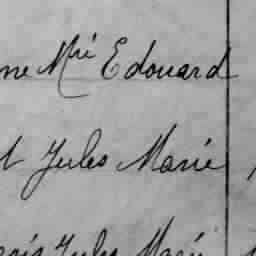 ne Mie Edouard
t Jules Marie
çois Jules Marie